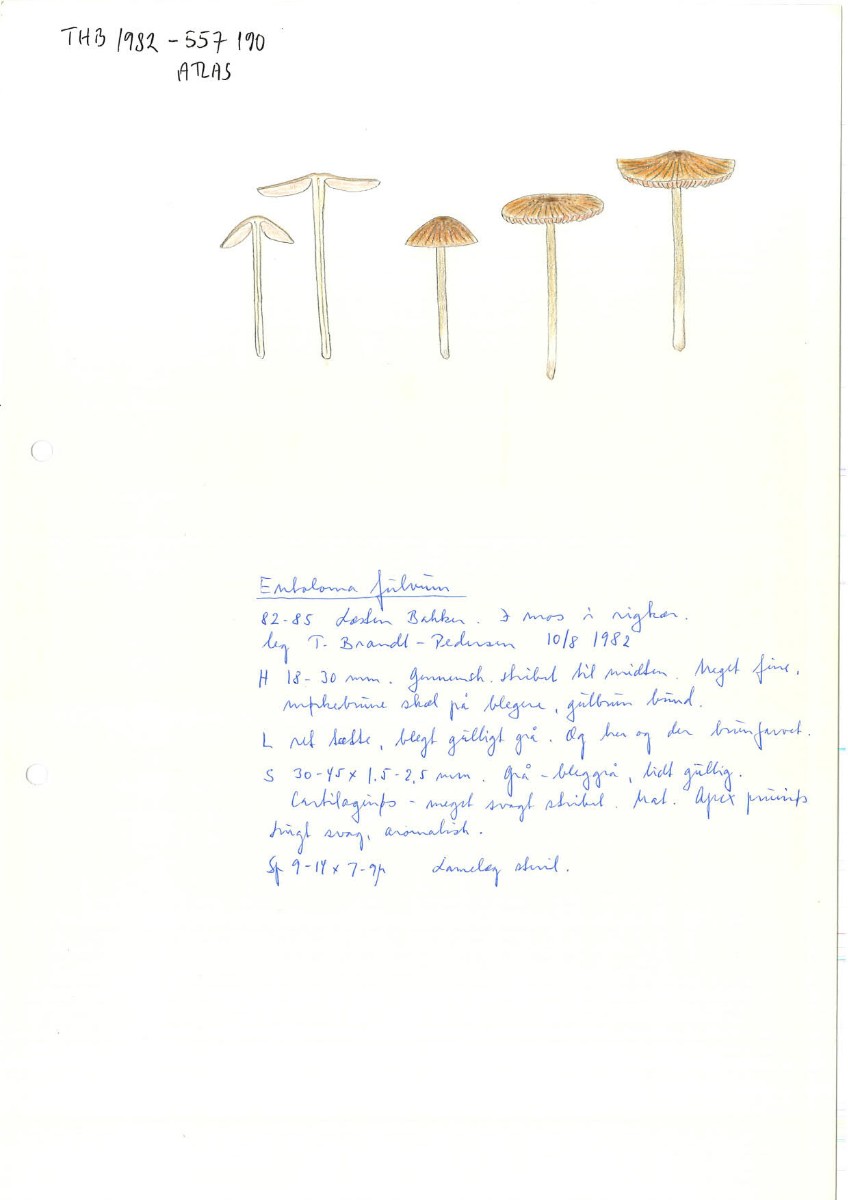 THB 1982 - 557190
ATLAS
Entoloma fulvum
82-85 Læsten Bakker. I mos i rigkær.
leg T. Brandt-Pedersen 10/8 1982
H 18-30 mm. Gennemsk. stribet til midten. Meget fine,
mørkebrune skæl på blegere, gulbrun bund.
L ret tætte, blegt gulligt grå. Æg her og der brunfarvet.
S 30-45 x 1.5-2,5 mm. Grå - bleggrå, lidt gullig.
Cartilaginøs - meget svagt stribet. Mat. Apex pruinøs
Lugt svag, aromatisk.
Sp 9-14 x 7-9µ Lamelæg steril.